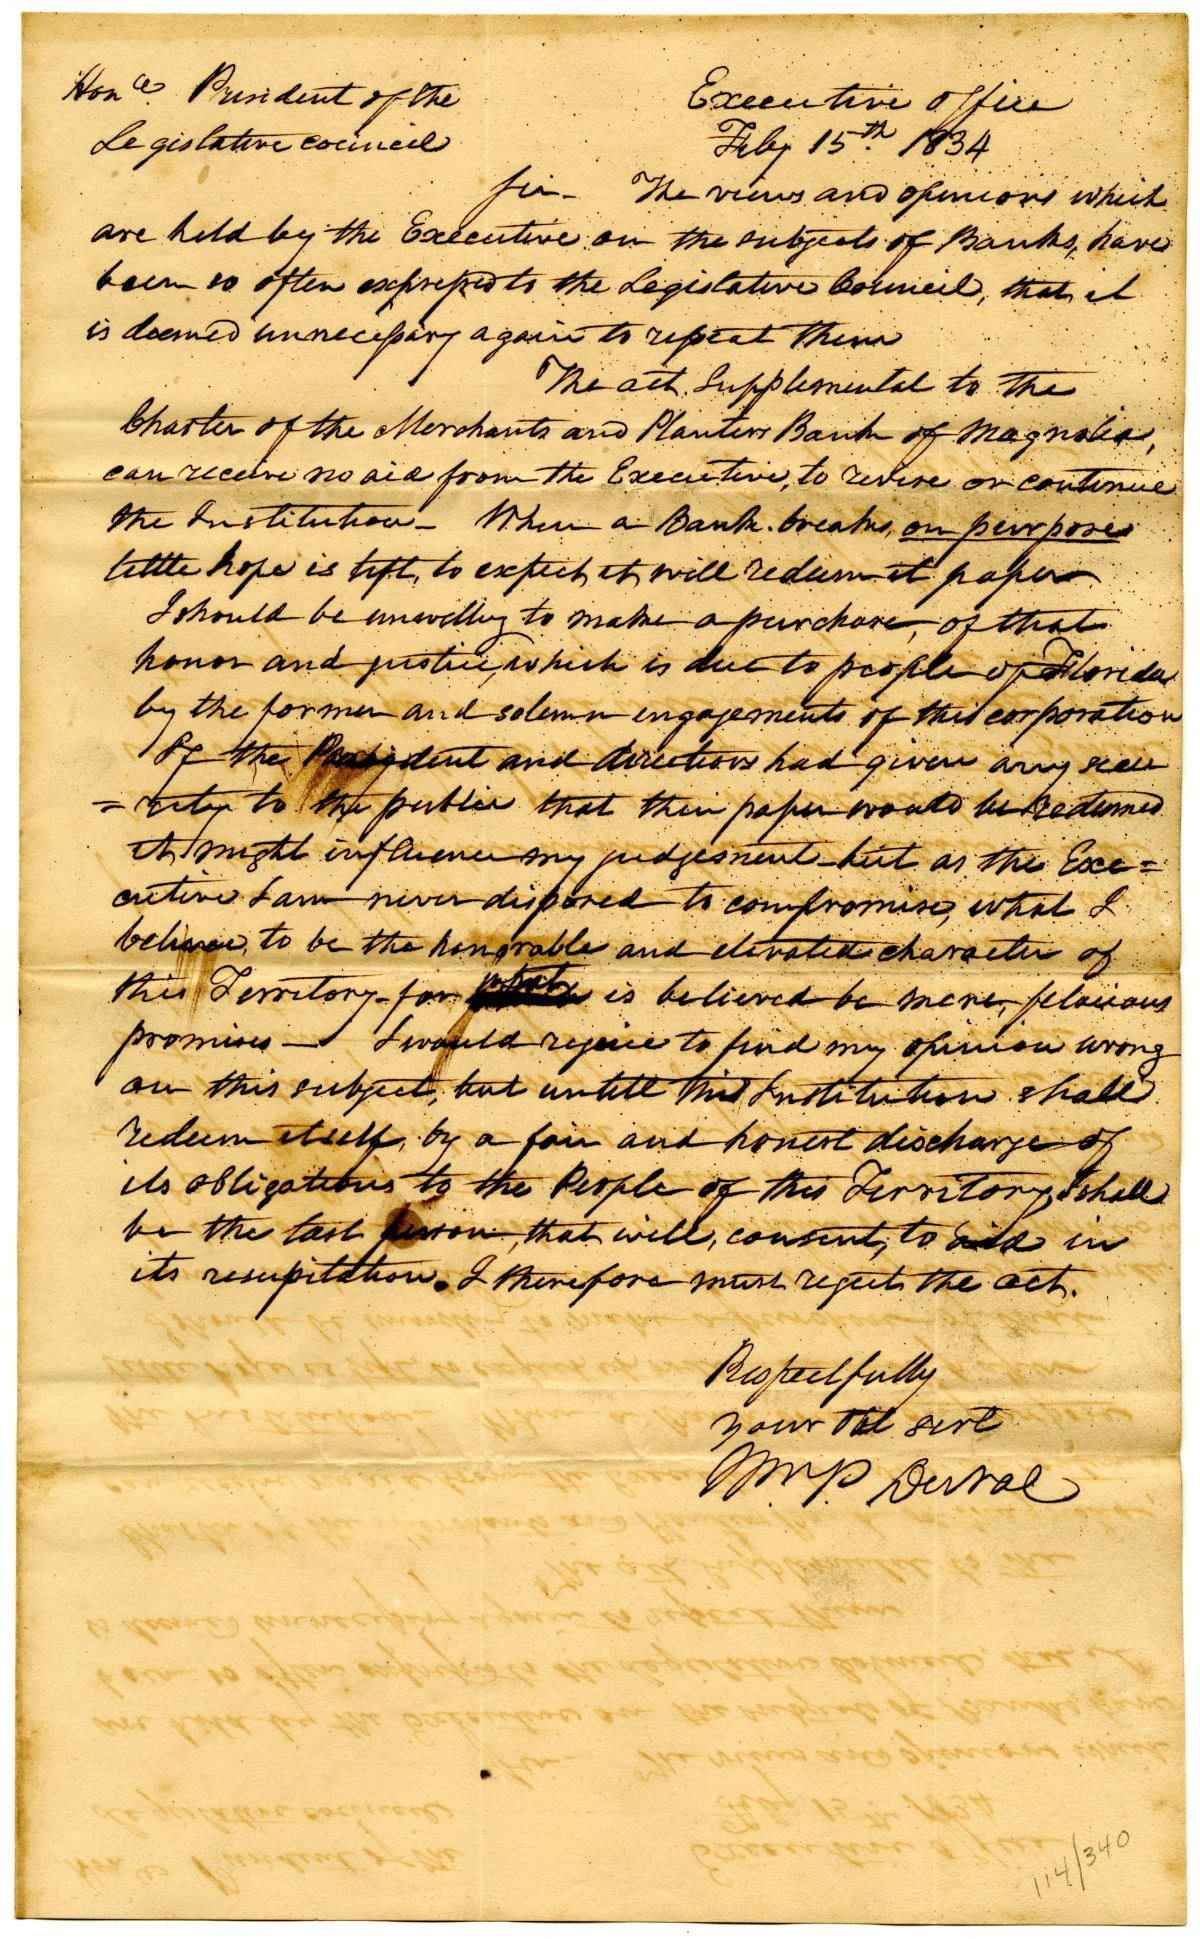 Honble. President of the
Legislative council
Executive office
Feby 15th 1834
Sir - The views and opinions which
are held by the Executive on the subjects of Banks, have
been so often expressed to the Legislative Council, that it
is deemed unnecessary again to repeat them
The act Supplemental to the
Charter of the Merchants and Planters Bank of Magnolia,
can receive no aid from the Executive, to revive or continue
the Institution - When a Bank breaks, on purpose
little hope is left, to expect it will redeem it paper
I should be unwilling to make a purchase, of that
honor and justice, which is due to people of Florida
by the former and solemn engagements of this corporation
If the President and directions had given any secu
= rity to the public that their paper would be redeemed
it might influence my judgement - but as the Exe =
cutive I am never disposed to compromise, what I
believe, to be the honorable and elevated character of
this Territory - for what is believed be mere, felicious
promises - I would rejoice to find my opinion wrong
on this subject, but untill this Institution shall
redeem itself, by a fair and honest discharge of
its obligations to the People of this Territory, I shall
be the last person, that will, consent, to aid in
its resupitation. I therefore must reject the act.
Respectfully
your Obt servt
Wm. P. DuVal
114/340